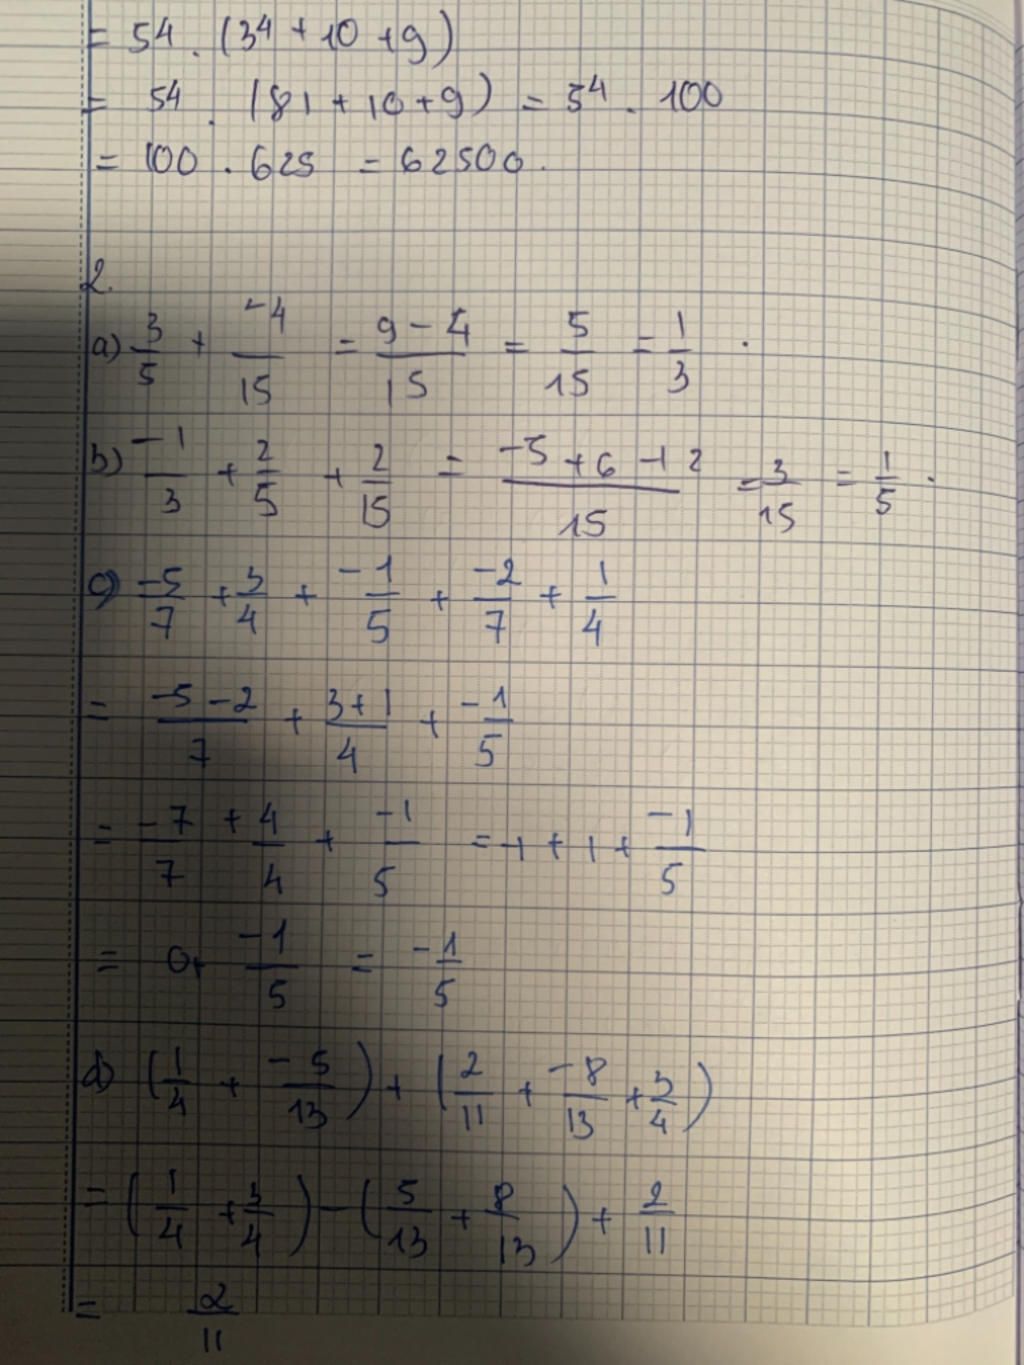 = 5⁴ . (3⁴ + 10 + 9)
= 5⁴ . (81 + 10 + 9) = 5⁴ . 100
= 100 . 625 = 62500.
2.
a) 3/5 + -4/15 = 9 - 4/15 = 5/15 = 1/3 .
b) -1/3 + 2/5 + 2/15 = -5 + 6 + 2/15 = 3/15 = 1/5 .
c) -5/7 + 3/4 + -1/5 + -2/7 + 1/4
= -5 - 2/7 + 3 + 1/4 + -1/5
= -7/7 + 4/4 + -1/5 = -1 + 1 + -1/5
= 0 + -1/5 = -1/5
d) (1/4 + -5/13) + (2/11 + -8/13 + 3/4)
= (1/4 + 3/4) - (5/13 + 8/13) + 2/11
= 2/11